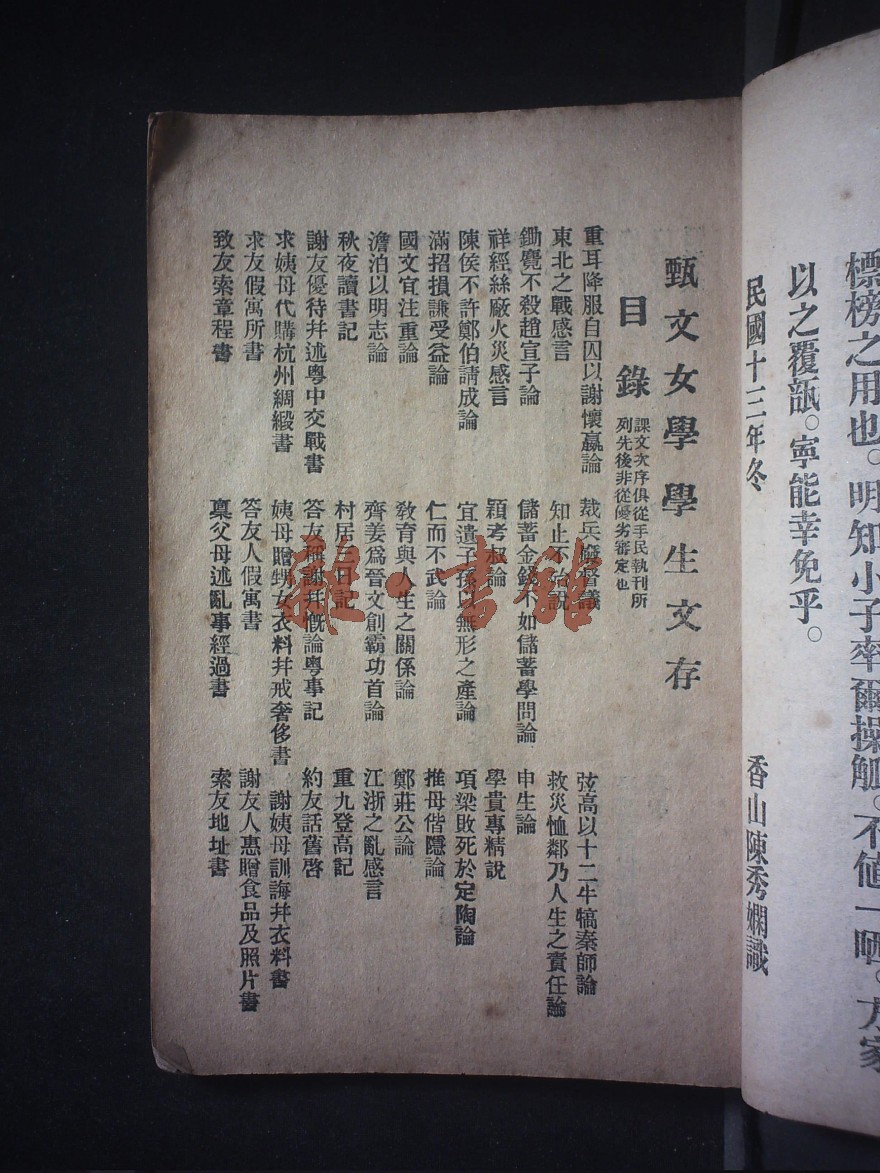 標榜之用也。明知小子率爾操觚。不值一哂。方家
以之覆瓿。寧能幸免乎。
民國十三年冬 香山陳秀嫻識
甄文女學學生文存
目錄
課文次序俱從手民執刊所
列先後非從優劣審定也
重耳降服自囚以謝懷嬴論 裁兵廢督議 弦高以十二牛犒秦師論
東北之戰感言 知止不殆說 救災恤鄰乃人生之責任論
鋤麑不殺趙宣子論 儲蓄金錢不如儲蓄學問論 申生論
祥經絲廠火災感言 穎考叔論 學貴專精說
陳侯不許鄭伯請成論 宜遺子孫以無形之產論 項梁敗死於定陶論
滿招損謙受益論 仁而不武論 推母偕隱論
國文宜注重論 敎育與人生之關係論 鄭莊公論
澹泊以明志論 齊姜爲晉文創霸功首論 江浙之亂感言
秋夜讀書記 村居三日記 重九登高記
謝友優待幷述粵中交戰書 答友稱謝幷慨論粵事記 約友話舊啓
求姨母代購杭州綢緞書 姨母贈甥女衣料幷戒奢侈書 謝姨母訓誨幷衣料書
求友假寓所書 答友人假寓書 謝友人惠贈食品及照片書
致友索章程書 稟父母述亂事經過書 索友地址書
雜·書館